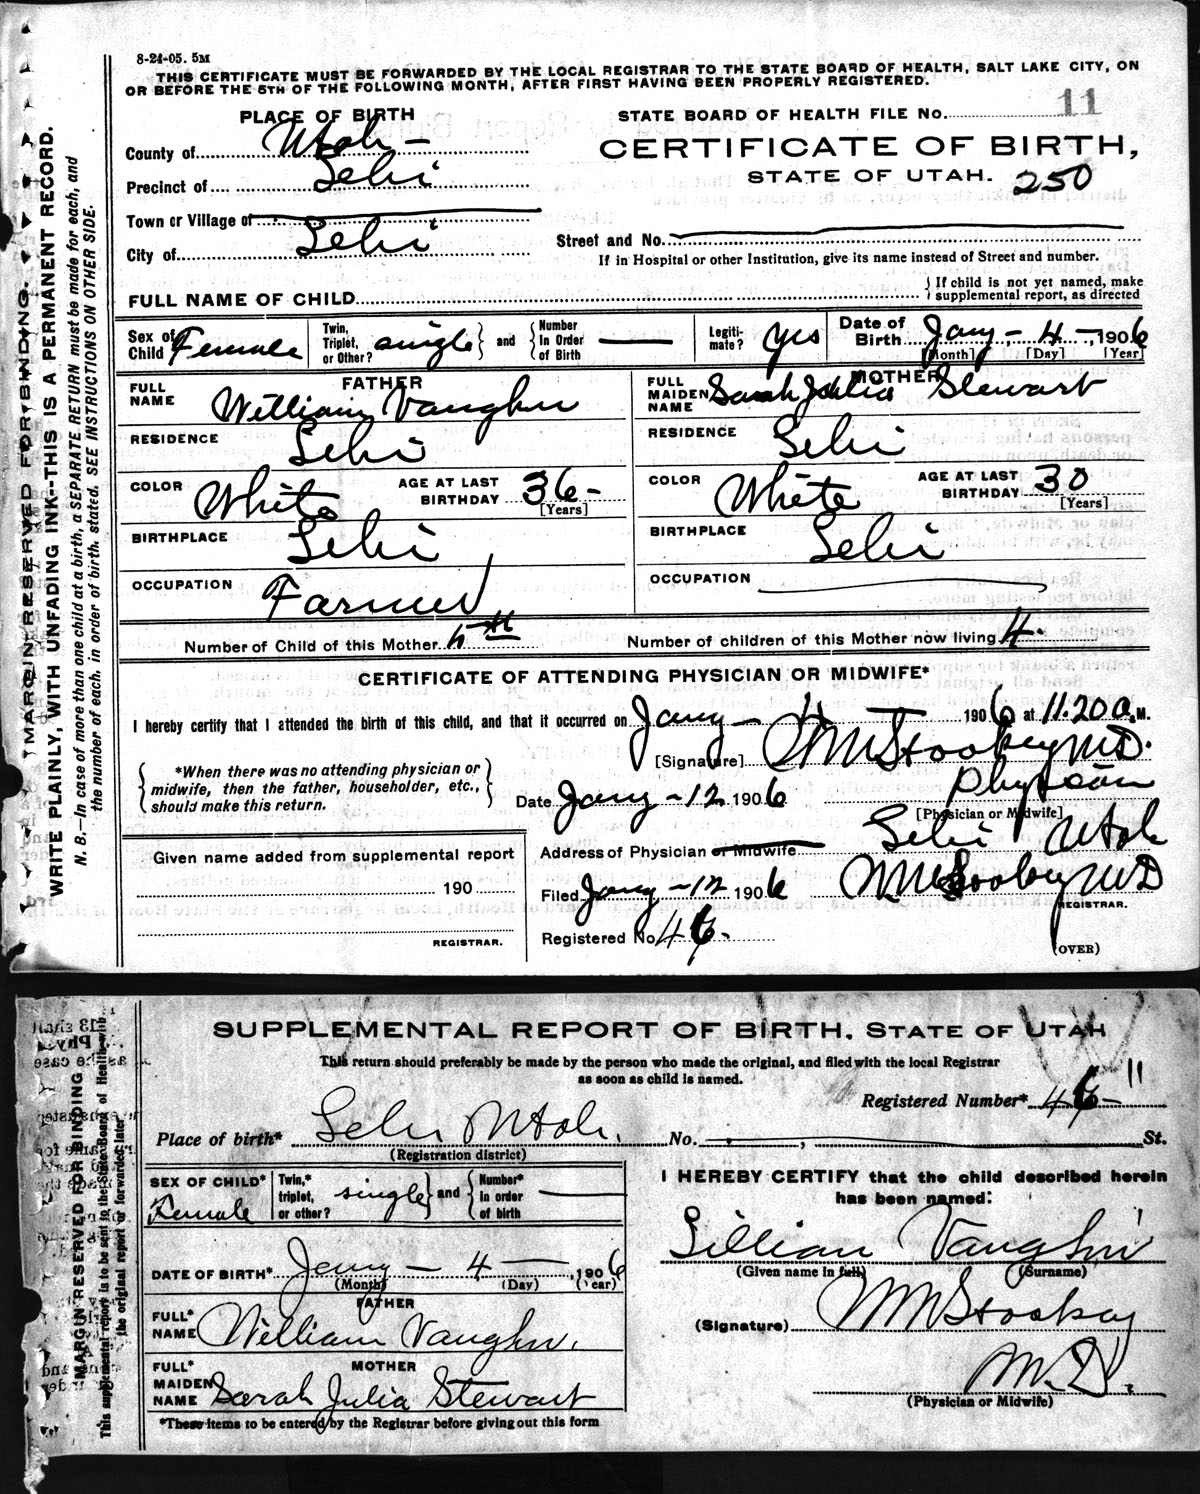 8-24-05. 5M
THIS CERTIFICATE MUST BE FORWARDED BY THE LOCAL REGISTRAR TO THE STATE BOARD OF HEALTH, SALT LAKE CITY, ON
OR BEFORE THE 5TH OF THE FOLLOWING MONTH, AFTER FIRST HAVING BEEN PROPERLY REGISTERED.
PLACE OF BIRTH
STATE BOARD OF HEALTH FILE No. 11
County of Utah
CERTIFICATE OF BIRTH,
Precinct of Lehi
STATE OF UTAH. 250
Town or Village of
City of Lehi
Street and No.
If in Hospital or other Institution, give its name instead of Street and number.
FULL NAME OF CHILD
{ If child is not yet named, make
supplemental report, as directed
Sex of Child Female
Twin, Triplet, or Other? single } and { Number In Order of Birth
Legiti-mate? yes
Date of Birth Jany - 4 -, 1906
[Month] [Day] [Year]
FATHER
MOTHER
FULL NAME William Vaughn
FULL MAIDEN NAME Sarah Julia Stewart
RESIDENCE Lehi
RESIDENCE Lehi
COLOR White AGE AT LAST BIRTHDAY 36 - [Years]
COLOR White AGE AT LAST BIRTHDAY 30 [Years]
BIRTHPLACE Lehi
BIRTHPLACE Lehi
OCCUPATION Farmer
OCCUPATION
Number of Child of this Mother 5th
Number of children of this Mother now living 4.
CERTIFICATE OF ATTENDING PHYSICIAN OR MIDWIFE*
I hereby certify that I attended the birth of this child, and that it occurred on Jany - 4 1906 at 11.20 a.M.
[Signature] Stookey M.D.
{ *When there was no attending physician or
midwife, then the father, householder, etc.,
should make this return. }
Date Jany - 12 1906
[Physician or Midwife]
Address of Physician or Midwife Lehi Utah
Given name added from supplemental report
190
Filed Jany - 12 1906 Stookey MD
REGISTRAR.
REGISTRAR.
Registered No. 46.
(OVER)
MARGIN RESERVED FOR BINDING.
WRITE PLAINLY, WITH UNFADING INK--THIS IS A PERMANENT RECORD.
N. B.—In case of more than one child at a birth, a SEPARATE RETURN must be made for each, and
the number of each, in order of birth, stated. SEE INSTRUCTIONS ON OTHER SIDE.
SUPPLEMENTAL REPORT OF BIRTH, STATE OF UTAH
This return should preferably be made by the person who made the original, and filed with the local Registrar
as soon as child is named.
11
Registered Number* 46 -
Place of birth* Lehi Utah. No. , St.
(Registration district)
SEX OF CHILD* Female
Twin,* triplet, or other? single } and { Number* In order of birth
I HEREBY CERTIFY that the child described herein
has been named:
Lillian Vaughn
(Given name in full) (Surname)
DATE OF BIRTH* Jany - 4 , 1906
(Month) (Day) (Year)
FATHER
FULL* NAME William Vaughn.
(Signature) Stookey
M.D.
(Physician or Midwife)
MOTHER
FULL* MAIDEN NAME Sarah Julia Stewart
*These items to be entered by the Registrar before giving out this form
MARGIN RESERVED FOR BINDING
This supplemental report is to be sent to the State Board of Health with
the original report or forwarded later